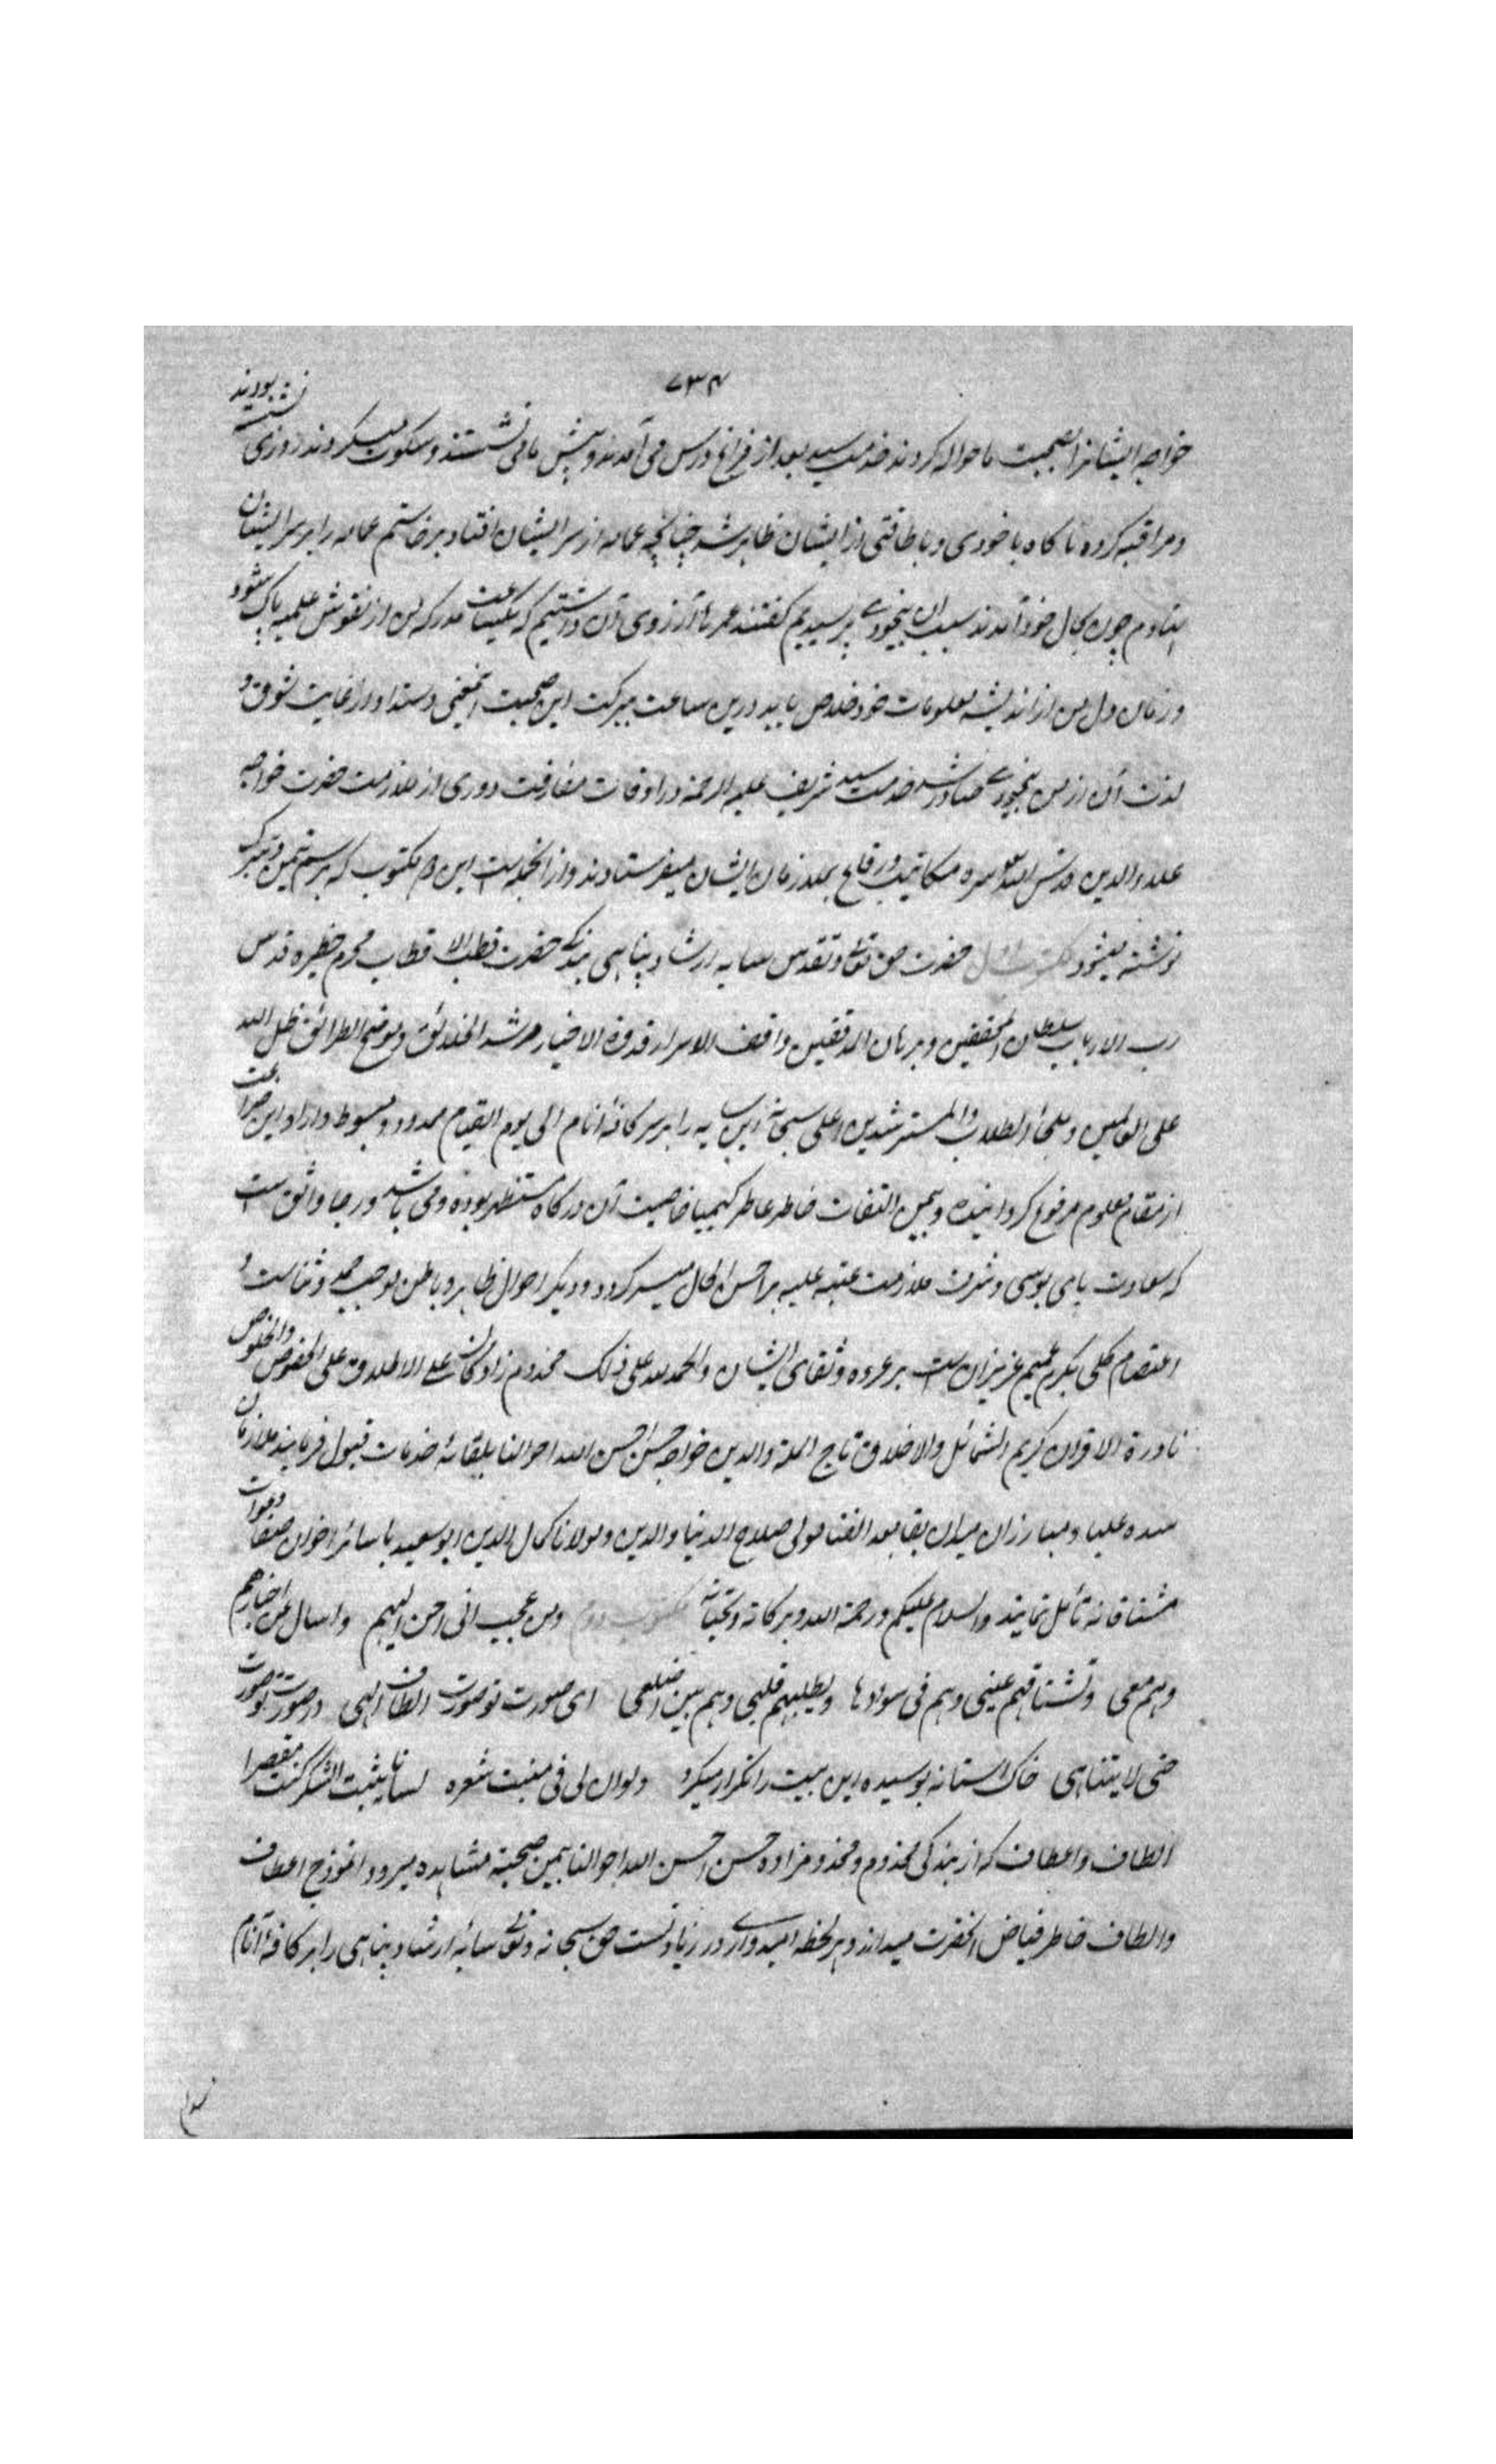 ۷۳۴
خواجه ایشانرا بصحبت ما حواله کردند خدمت سید بعد از فراغ درس می آمدند و پیش ما می نشستند و سکوت میکردند روزی نشسته بودند
و مراقبه کرده ناکاه با خودی و با طاقتی از ایشان ظاهر شد چنانچه عمامه از سر ایشان افتاد برخاستم عمامه را بر سر ایشان
نهادم چون بحال خود آمدند سبب ان بیخودی پرسیدیم کفتند عمرها آرزوی آن داشتیم که یکساعت مدرکه من از نقوش علمیه پاک شود
و زمان دل من از اندیشه معلومات خود خلاص یابد درین ساعت ببرکت این صحبت آنمعنی دستداد از غایت شوق و
لذت آن از من بیخودی صادر شد خدمت سید شریف علیه الرحمة در اوقات مفارقت و دوری از ملازمت حضرت خواجه
علاء الدین قدس الله سره مکاتیب و رقاع بملازمان ایشان میفرستادند و از انجمله است این دو مکتوب که برسم تیمن و تبرک
نوشته میشود مکتوب اول حضرت حق تعالی و تقدس سایه ارشاد پناهی بندکی حضرت قطب الاقطاب محرم حظیره قدس
رب الارباب سلطان المحققین و برهان المدققین واقف الاسرار قدوة الاخیار مرشد الخلائق و موضح الطرائق ظل الله
علی العالمین و ملجأ الطلاب و المسترشدین اعلی سبحانه این سایه را بر سر کافهٔ انام الی یوم القیام ممدود و مبسوط داراد این ضراعت
از مقام معلوم مرفوع کردانیده و بیمن التفات خاطر عاطر کیمیا خاصیت آن درکاه مستظهر بوده و می باشد و رجا واثق است
که سعادت پای بوسی و شرف ملازمت عتبه علیه بر احسن الحال میسر کردد و دیکر احوال ظاهر و باطن موجب حمد و ثناست و
اعتصام کلی بکرم عمیم عزیزان است بر عروه وثقای ایشان و الحمد لله علی ذلک مخدوم زادکان علی الاطلاق علی الخصوص و الخلوص
نادرة الاقران کریم الشمائل و الاخلاق تاج الملة و الدین خواجه حسن احسن الله احوالنا بلقائه خدمات قبول فرمایند ملازمان
سده علیا و مبارزان میدان بقا بعد الفنا مولی صلاح الدنیا و الدین و مولانا کمال الدین ابو سعید با سائر اخوان صفا دعوات
مشتاقانه تأمل نمایند و السلام علیکم و رحمة الله و برکاته و تحیاته مکتوب دوم و من عجب انی احن الیهم و اسأل عن اخبارهم
و هم معی و تشتاقهم عینی و هم فی سوادها و یطلبهم قلبی و هم بین اضلعی ای صورت تو صورت الطاف الهی در صورت تو صورت
حتی لا یتناهی خاک استانه بوسیده این بیت را تکرار میکرد و لو ان لی فی منبت شعره لسانا یثبت الشکر کنت مقصرا
الطاف و اعطاف که از بندکی مخدوم و مخدومزاده حسن احسن الله احوالنا بیمن صحبته مشاهده میرود انموذج اعطاف
و الطاف خاطر فیاض انحضرت میداند و هر لحظه امیدواری در زیادتست حق سبحانه و تعالی سایه ارشاد پناهی را بر کافهٔ انام